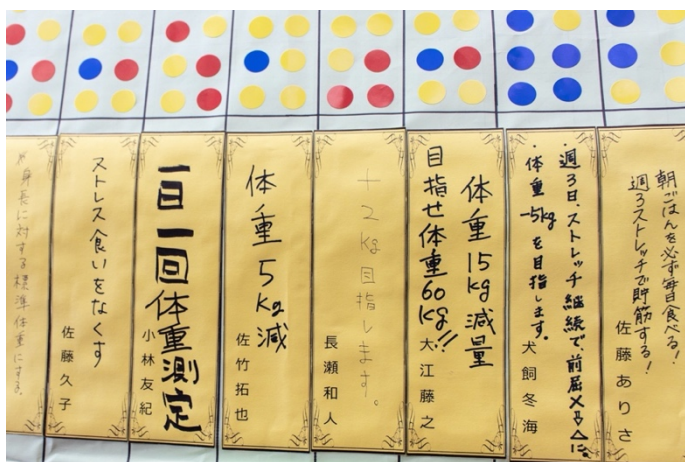 朝ごはんを必ず毎日食べる!
週3ストレッチで貯筋する!
佐藤ありさ
・週3日、ストレッチ継続で、前屈×⇩△に。
・体重-5kgを目指します。
犬飼冬海
体重15kg減量
目指せ体重60kg!!
大江藤之
+2kg目指します。
長瀬和人
体重5kg減
佐竹拓也
一日一回体重測定
小林友紀
ストレス食いをなくす
佐藤久子
身長に対する標準体重にする。